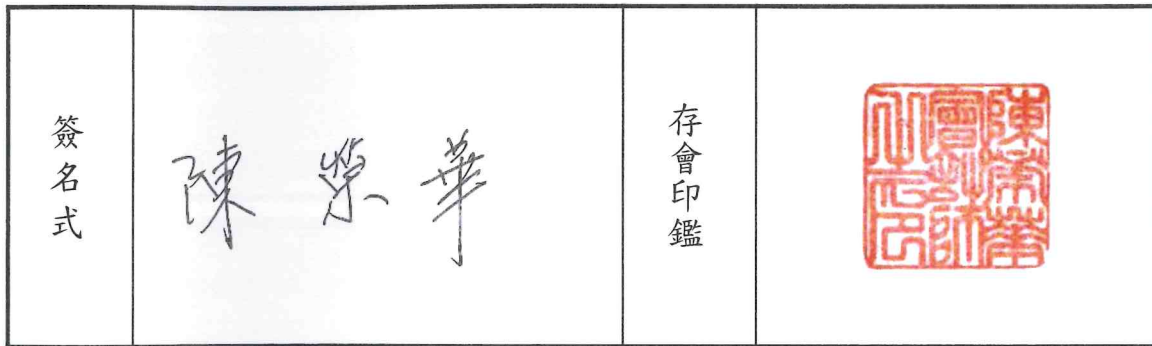 簽名式
陳榮華
存會印鑑
陳榮華
會計師
之印